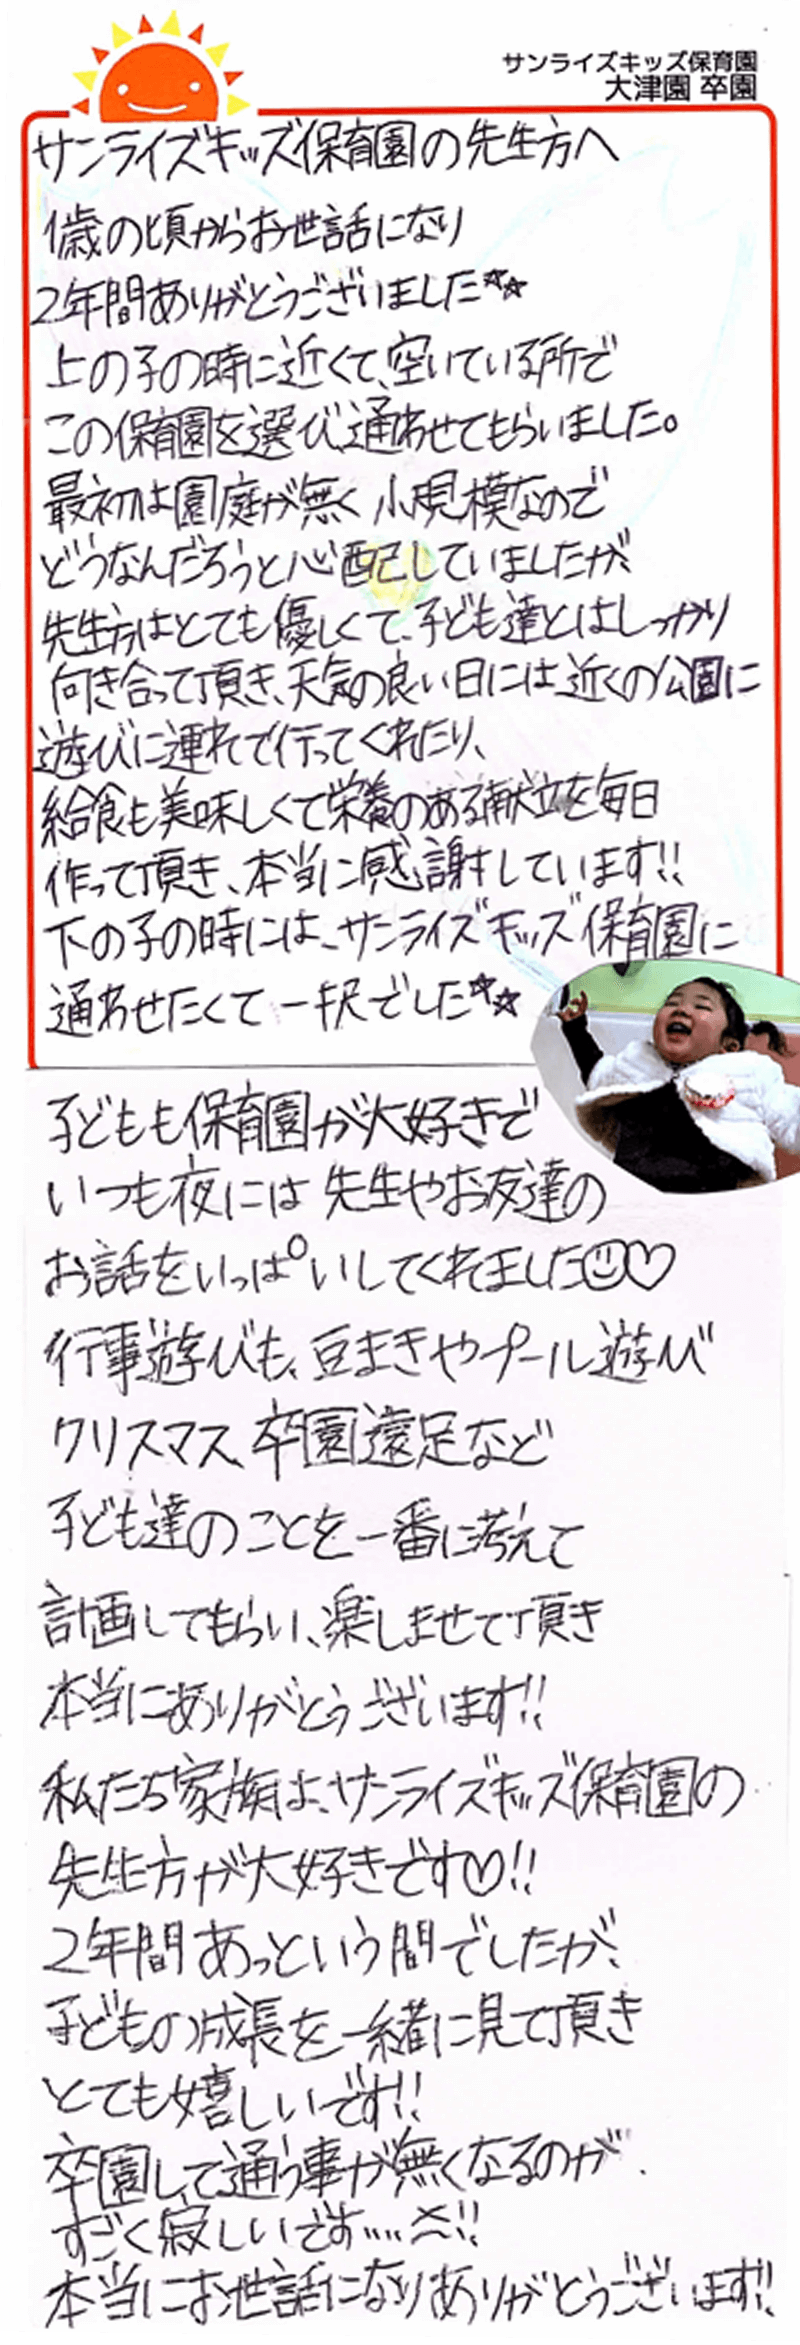 サンライズキッズ保育園
大津園 卒園
サンライズキッズ保育園の先生方へ
1歳の頃からお世話になり
2年間ありがとうございました☆☆
上の子の時に近くて、空いている所で
この保育園を選び、通わせてもらいました。
最初は園庭が無く 小規模なので
どうなんだろうと心配していましたが、
先生方はとても優しくて、子ども達とはしっかり
向き合って頂き、天気の良い日には近くの公園に
遊びに連れて行ってくれたり、
給食も美味しくて栄養のある献立を毎日
作って頂き、本当に感謝しています!!
下の子の時には、サンライズキッズ保育園に
通わせたくて一択でした☆☆
子どもも保育園が大好きで
いつも夜には 先生やお友達の
お話をいっぱいしてくれました☺♡
行事遊びも、豆まきやプール遊び
クリスマス、卒園遠足など
子ども達のことを一番に考えて
計画してもらい、楽しませて頂き
本当にありがとうございます!!
私たち家族は、サンライズキッズ保育園の
先生方が大好きです♡!!
2年間あっという間でしたが、
子どもの成長を一緒に見て頂き
とても嬉しいです!!
卒園して通う事が無くなるのが
すごく寂しいです....!!
本当にお世話になりありがとうございます!!